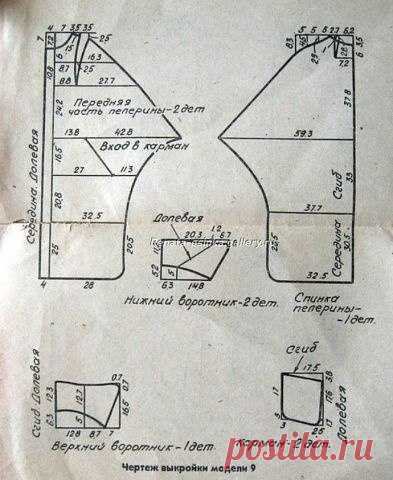 4 7 3.5 3.5
7 7.2 1.5 2.5
8.3 4.5 5 5 5 2.7 6.2
6 3.5
6 8.7 16.3
2.5
2.9 12.8
7.2
10.8
8.8 27.7
Передняя
часть пелерины-2дет
24.2
37.8
13.8 42.8
59.3
Вход в карман
16.5
27 11.3
33
Сгиб
Середина Долевая
20.8
32.5
37.7
Долевая
1.2
20.3 6.7
25 20.5
5.2 5
6.3 14.8
22.5 30.5
Середина
4 28
32.5
Нижний воротник-2дет.
Спинка
пелерины-
-1дет.
Сгиб
17.5
3.8
17.6
Долевая
3 3
17
2.5
Карман-2дет.
Сгиб Долевая
0.7
0.7
12.3 12.7
16.5
6.3 5
12.8 8.7 7
Верхний воротник-1дет.
Чертеж выкройки модели 9
postila.ru